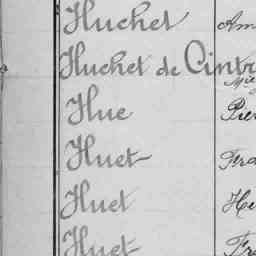 Huchet Am
Huchet de Cintr
Hue Pier
Huet Ferd
Huet He
Huet Fra